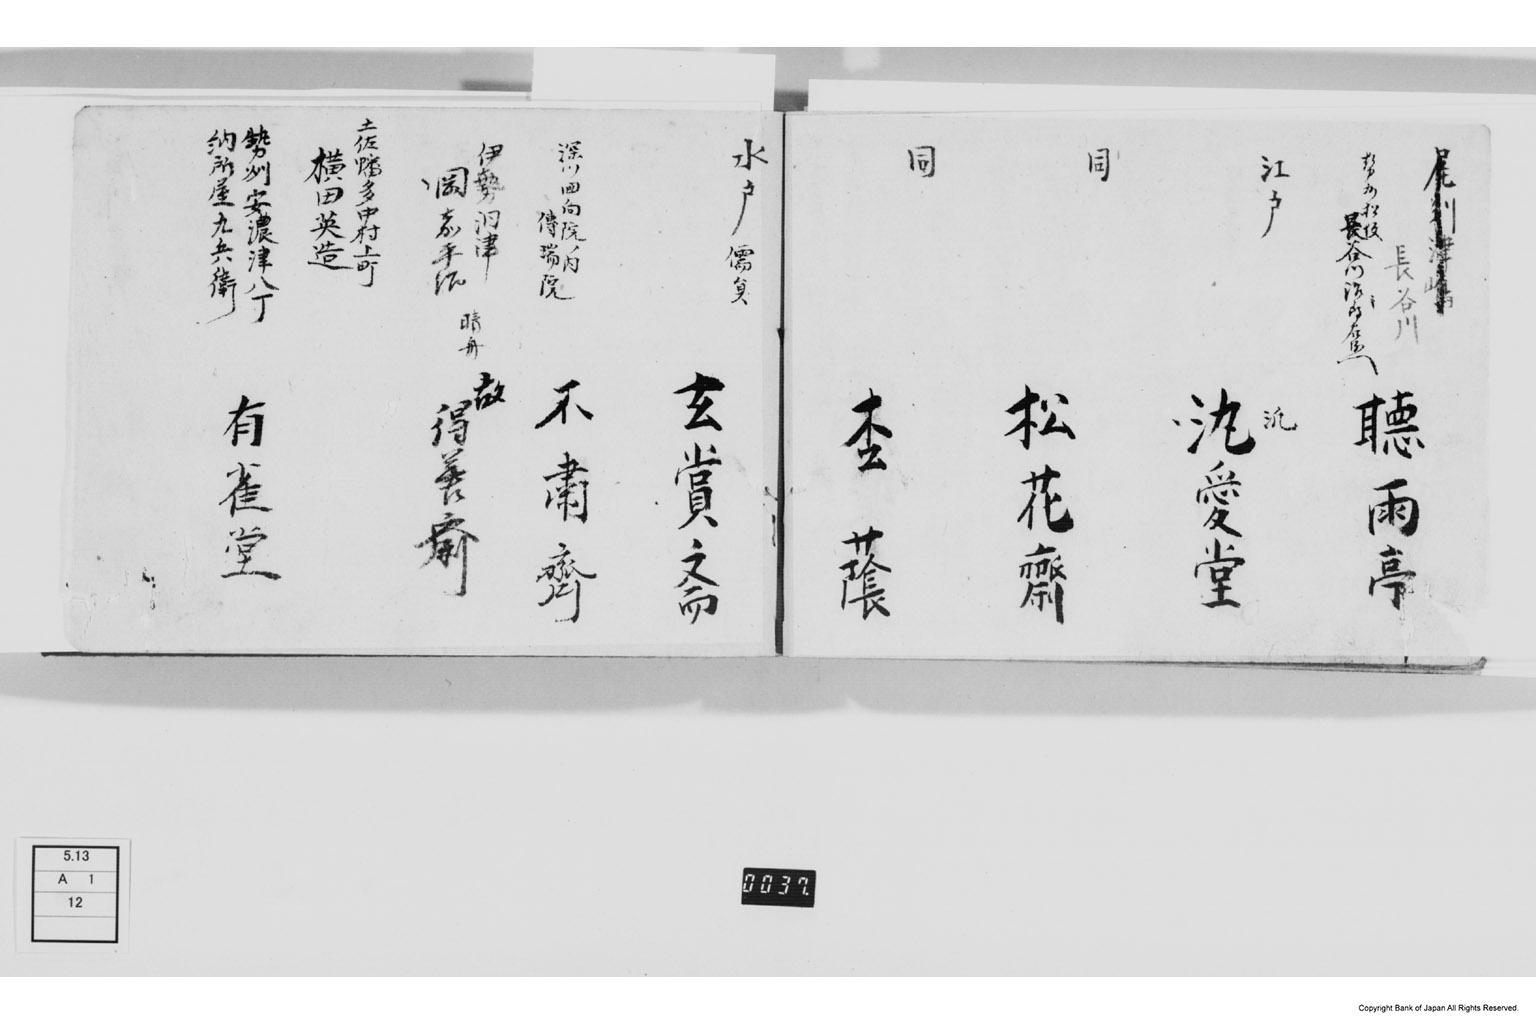 尾州津嶋
長谷川
勢州松坂
長谷川次郎右衛門
聴雨亭
江戸
汎
汎愛堂
同
松花齋
同
杢蔭
水戸
儒員
玄賞斎
深川回向院ノ内
傳瑞院
不肅齊
伊勢洞津
岡嘉平次
晴舟
故
得善齋
土佐幡多中村上町
横田英造
勢州安濃津八丁
納所屋九兵衛
有雀堂
5.13
A 1
12
0037
Copyright Bank of Japan All Rights Reserved.